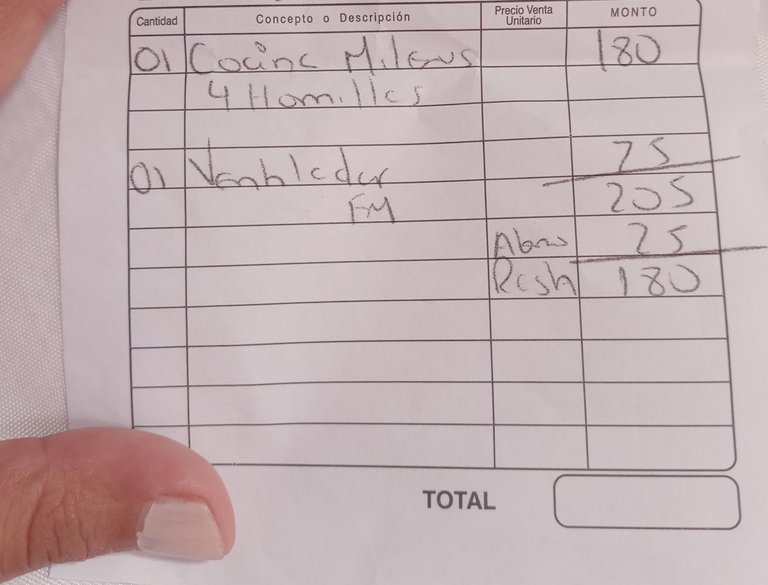 Cantidad Concepto o Descripción Precio Venta Unitario MONTO
01 Cocina 180
4 Hornillas
01 Ventilador 25
FM 205
Abono 25
Resta 180
TOTAL